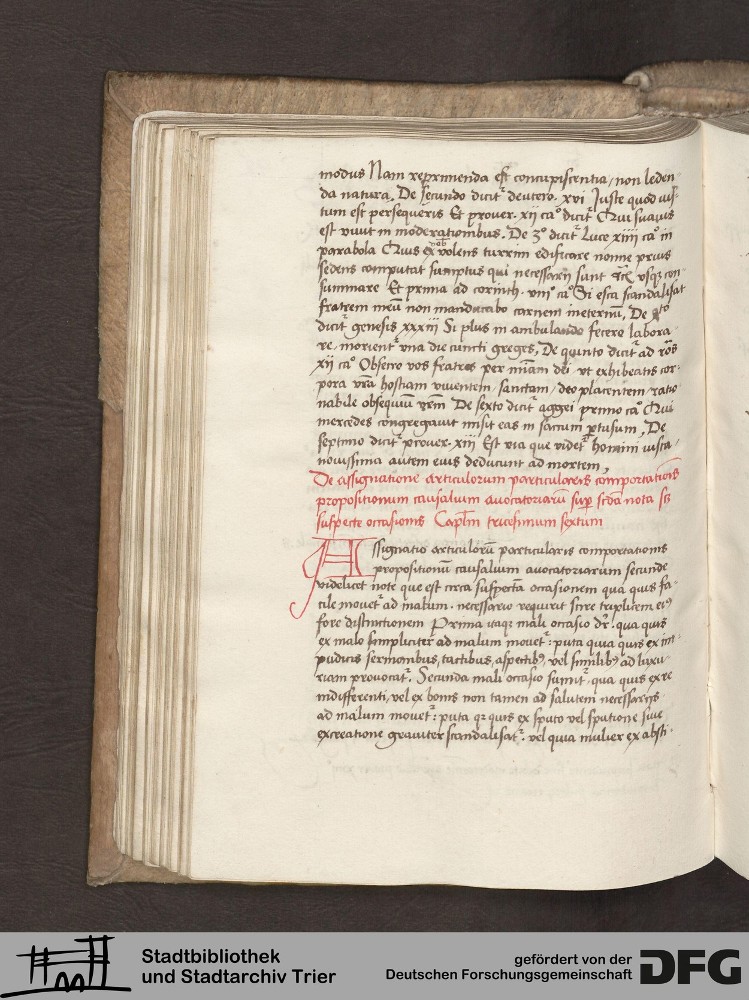 modus Nam reprimenda est concupiscentia / non leden-
da natura, De secundo dicit deutero. xvi Juste quod ius-
tum est persequeris Et prouer. xii caº dicit Qui suauis
est viuit in moderationibus. De 3º dicit Luce xiiii caº in
parabola Quis ex vob volens turrim edificare nonne prius
sedens computat sumptus qui necessarij sunt usqz con-
summare Et prima ad corinth. viiiº caº Si esca scandalisat
fratrem meū non manducabo carnem ineternū, De 4to
dicit genesis xxxiii Si plus in ambulando fecero labora-
re, morient vna die cuncti greges, De quinto dicit ad roōs
xii caº Obsecro vos fratres per miam dei, vt exhibeatis cor-
pora vra hostiam viuentem, sanctam, deo placentem, ratio
nabile obsequiū vrm De sexto dicit aggei primo caº Qui
mercedes congregauit misit eas in saccum ptusum, De
septimo dicit prouer. xiii Est via que videt homini iusta,
nouissima autem eius deducunt ad mortem,
De assignatione articulorum particularis comportationis
propositionum causalium auocatoriarū sup scda nota scz
suspecte occasionis Caplm tricesimum sextum
Assignatio articulorū particularis comportationis
propositionū causalium auocatoriarum secunde
videlicet note que est circa suspectā occasionem qua quis fa-
cile mouet ad malum, necessario requirit scire triplicem eiꝰ
fore distinctionem Prima itaqz mali occasio dr, qua quis
ex malo simpliciter ad malum mouet: puta quia quis ex im-
pudicis sermonibus, tactibus, aspectibꝫ, vel similibꝫ ad luxu-
riam prouocat. Secunda mali occasio sumit, qua quis ex re
indifferenti, vel ex bonis non tamen ad salutem necessarijs
ad malum mouet: puta qz quis ex sputo vel sputione siue
excreatione grauiter scandalisat. vel quia mulier ex absti-
Stadtbibliothek
und Stadtarchiv Trier
gefördert von der
Deutschen Forschungsgemeinschaft
DFG